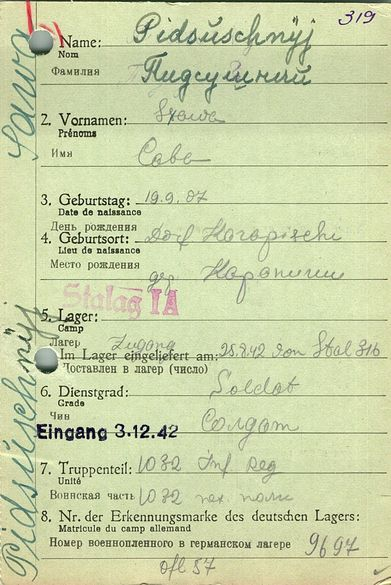 319
1. Name: Pidsüschnÿj
Nom
Фамилия Пидсушний
Sawa
2. Vornamen: Sawa
Prénoms
Имя Сава
3. Geburtstag: 19.9.07
Date de naissance
День рождения
4. Geburtsort: Dorf Harapischi
Lieu de naissance
Место рождения дер
Stalag IA
5. Lager:
Camp
Лагерь Zugang
Im Lager eingeliefert am: 25.8.42 von Stal 316
Доставлен в лагер (число)
Pidsüschnÿj
6. Dienstgrad: Soldat
Grade
Чин Солдат
Eingang 3.12.42
7. Truppenteil: 1032 Inf Reg
Unité
Воинская часть 1032 пех. полк
8. Nr. der Erkennungsmarke des deutschen Lagers:
Matricule du camp allemand
Номер военнопленного в германском лагере 9697